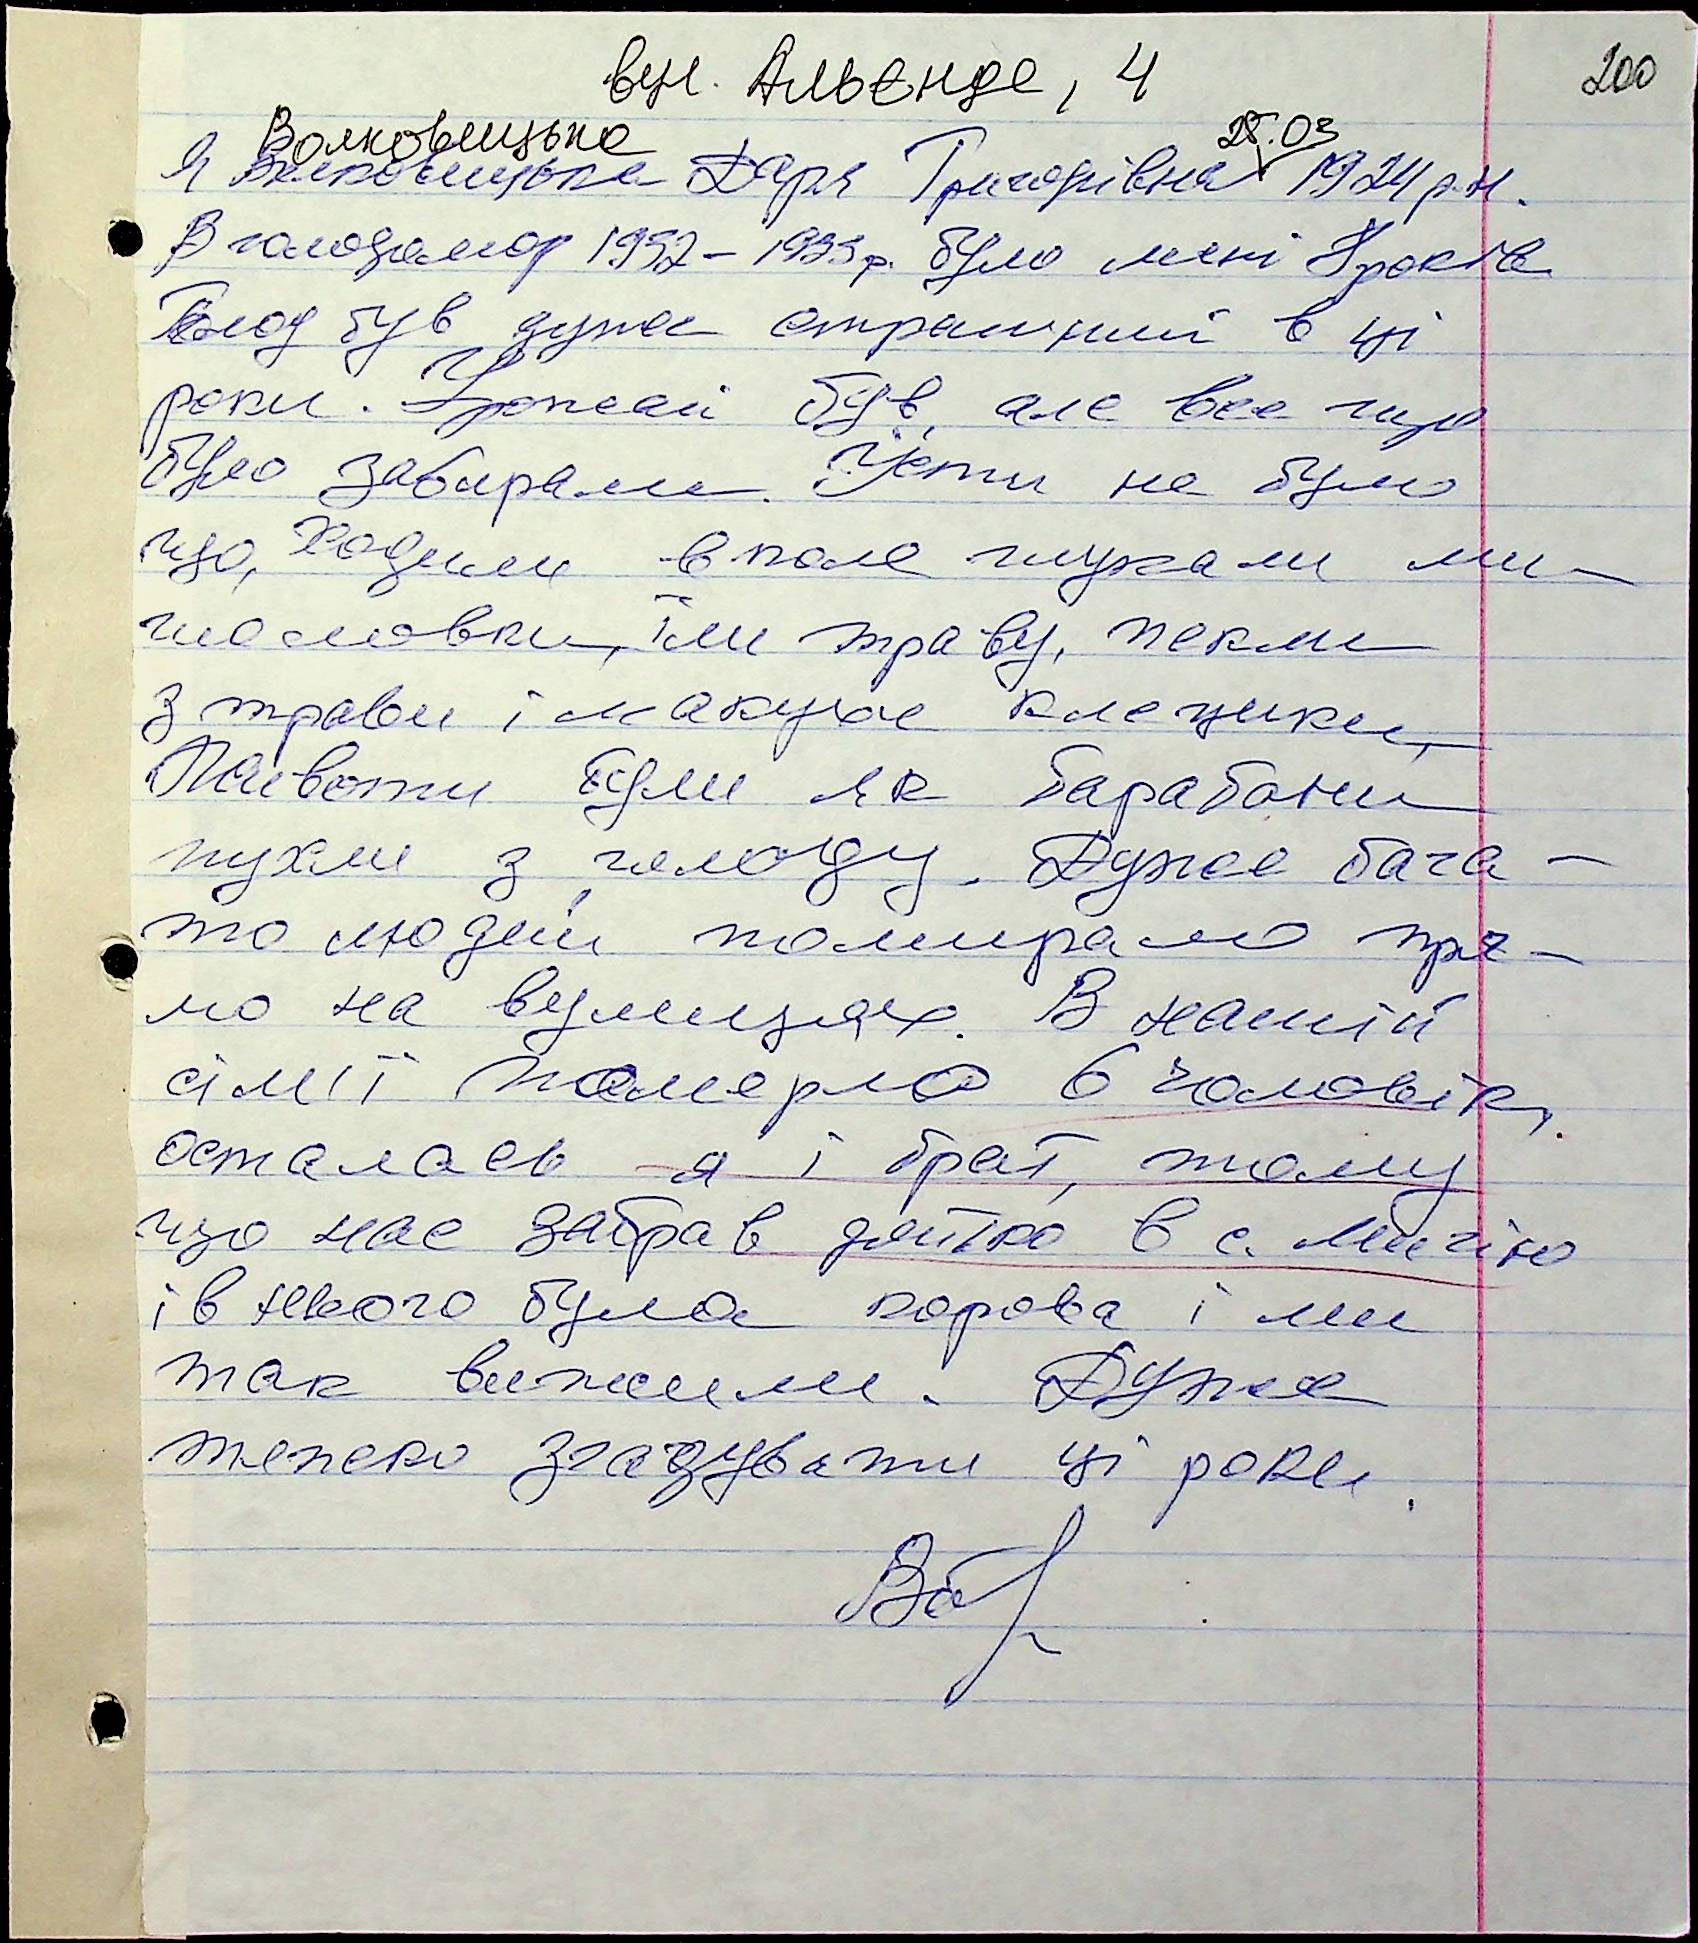 вул. Альєнде, 4
200
Волковицька
25.03
Я Волковицька Даря Григорівна 1924 р.н.
В голодомор 1932-1933р. було мені 8 років
Голод був дуже страшний в ці
роки. Урожай був, але все що
було забирали. Їсти не було
що, ходили в поле шукали ми
шоловки, їли траву, пекли
з трави і макухе клецики,
Животи були як барабани
пухли з голоду. Дуже бага-
то людей помирало пря-
мо на вулицях. В нашій
сімї померло 6 чоловік,
осталась я і брат, тому
що нас забрав дядько в с. Мигію
і в нього була корова і ми
так вижили. Дуже
тяжко згадувати ці роки.